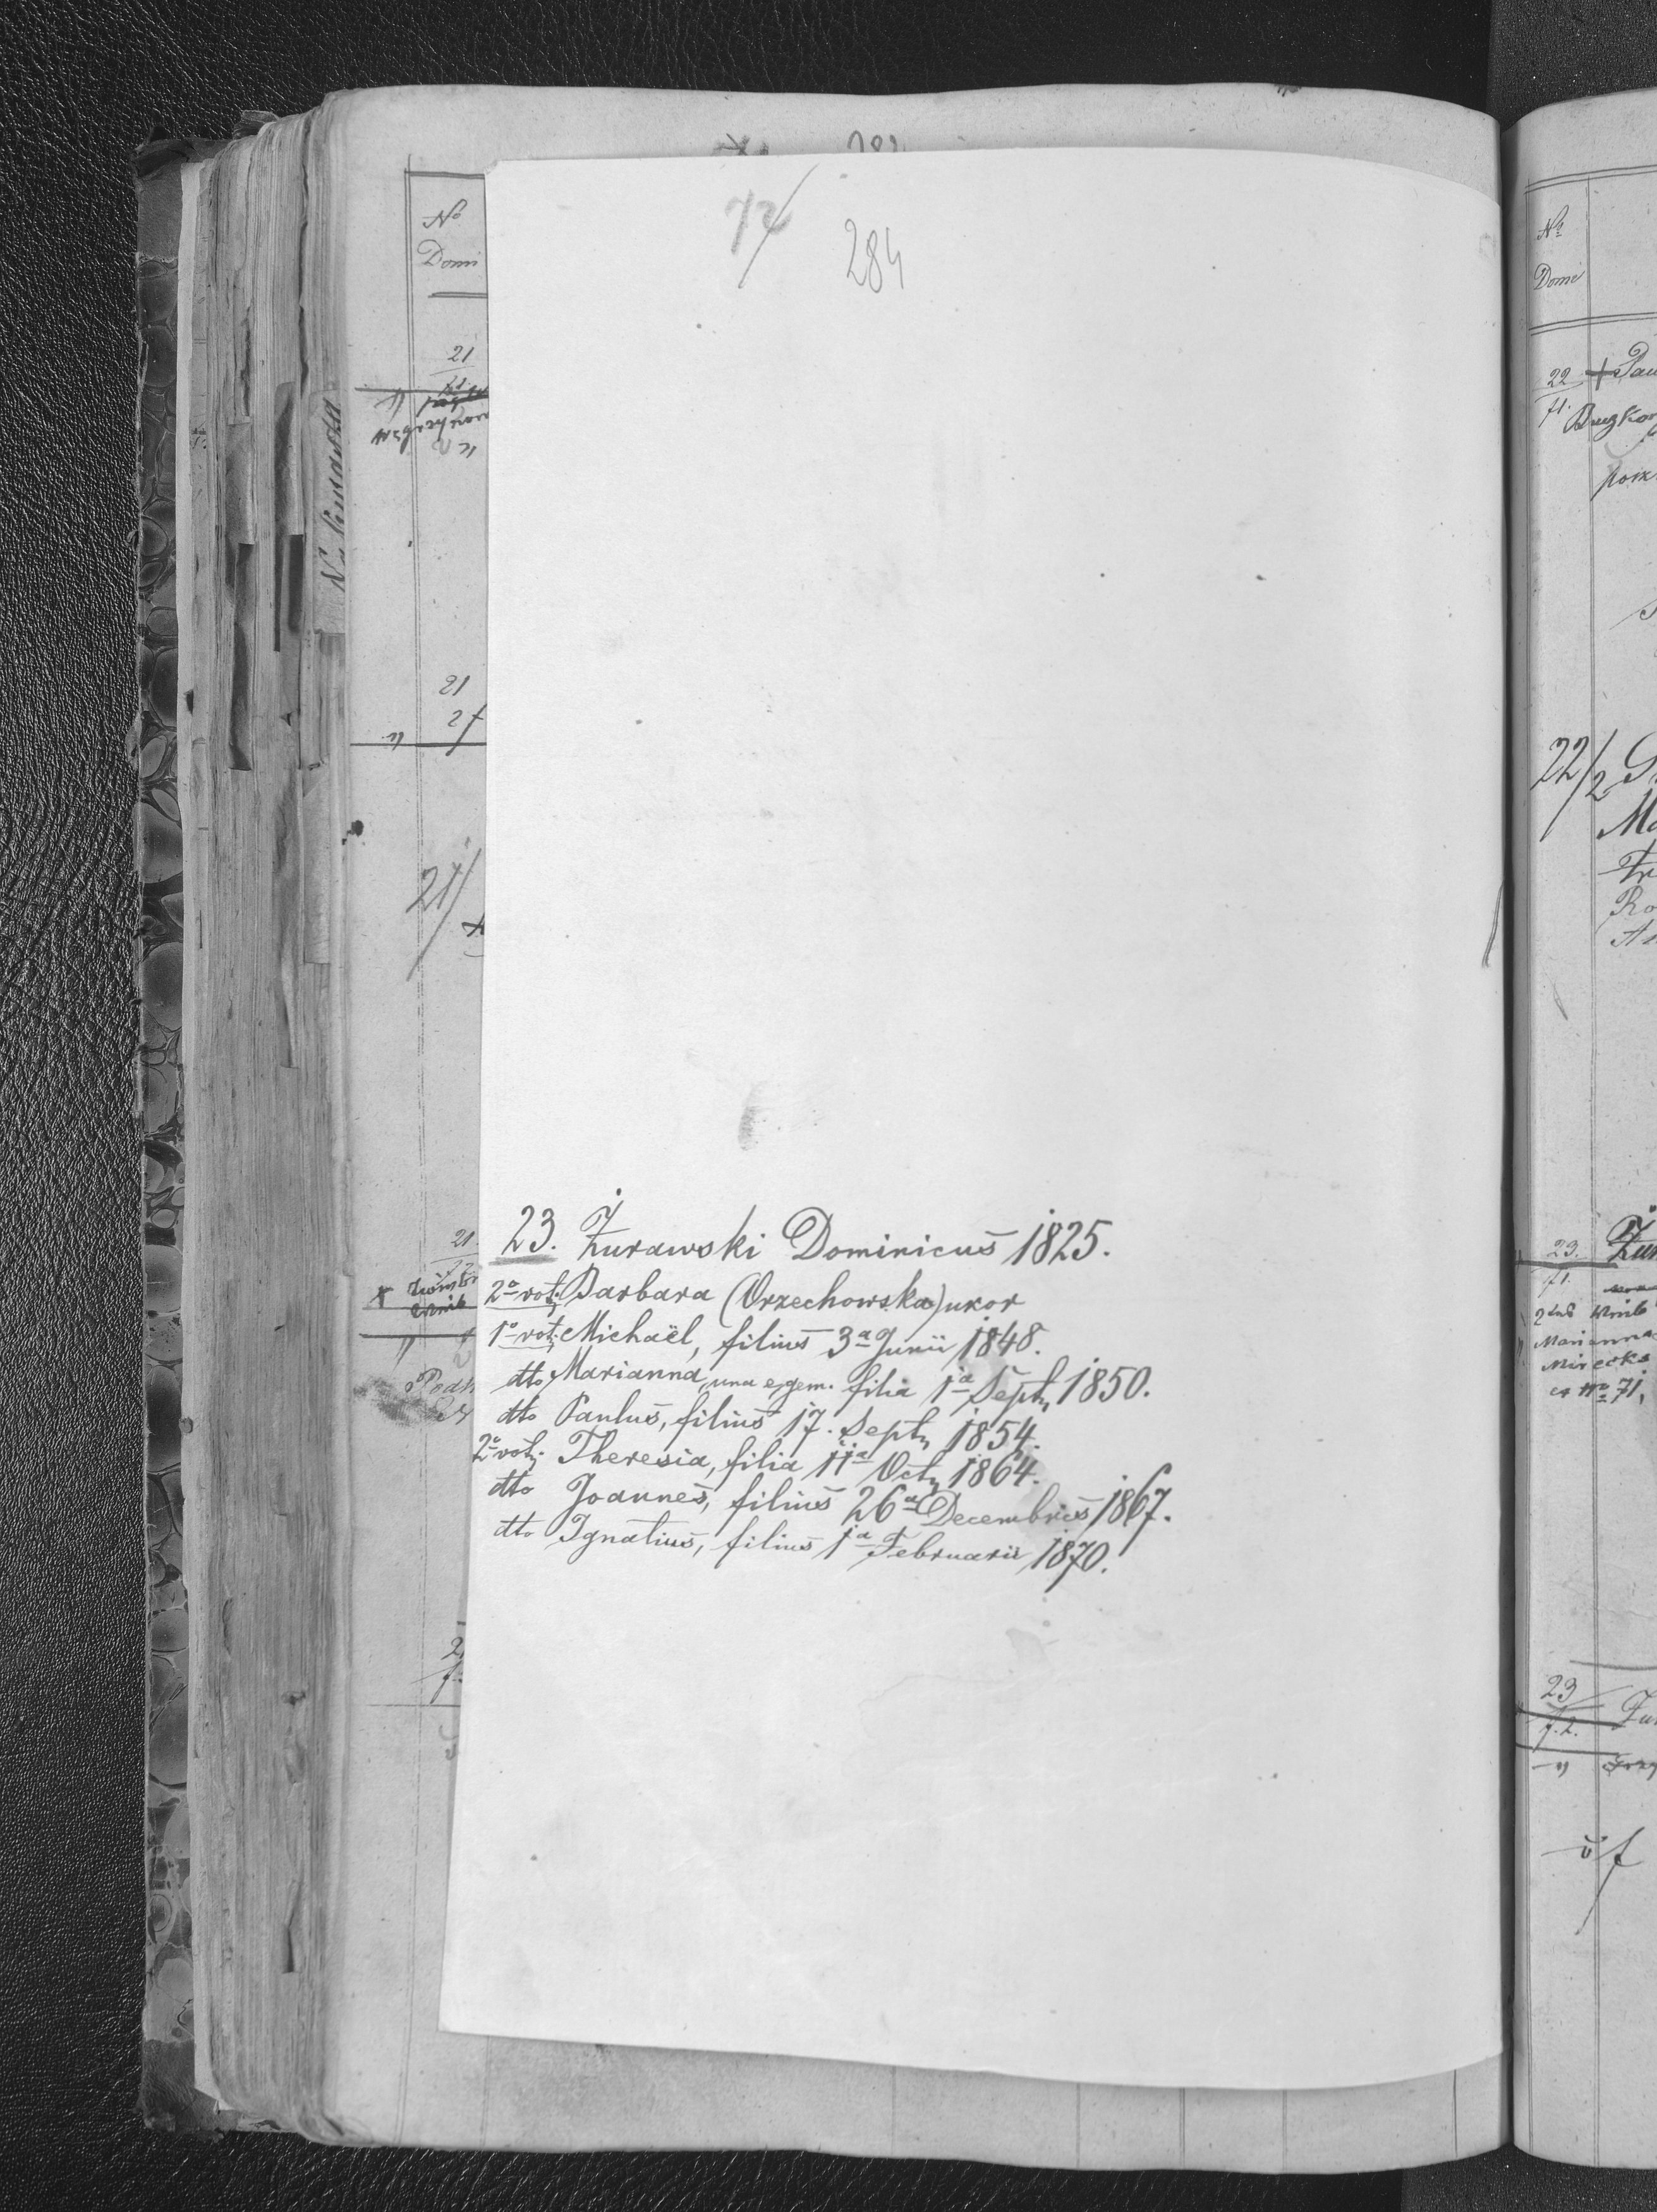 72/
284
No
Domi
21
21
27
21/
21
23. Żurawski Dominicus 1825.
2o vot. Barbara (Orzechowska) uxor
1o vot. Michaël, filius 3a Junii 1848.
dto Marianna, una e gem. filia 1a Sept. 1850.
dto Paulus, filius 17. Sept. 1854.
2o vot. Theresia, filia 11a Oct. 1864.
dto Joannes, filius 26a Decembris 1867.
dto Ignatius, filius 1a Februarii 1870.
No
Domi
22
f1.
22/2
Ma
Ro
23.
f1.
Marianna
Mirecka
No 71,
23
f.2.